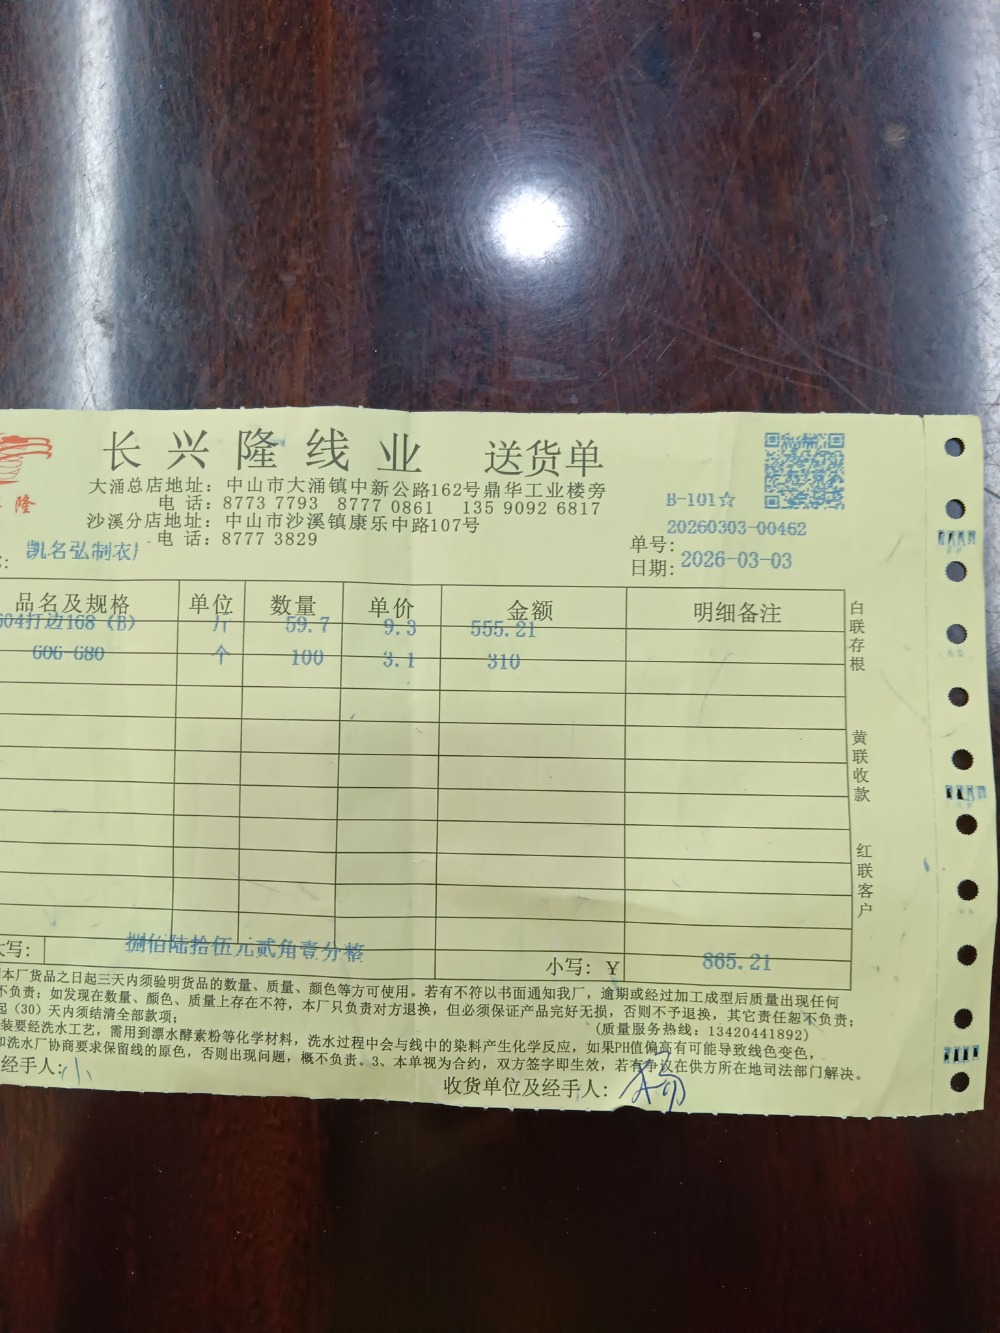 长兴隆线业 送货单
隆
大涌总店地址：中山市大涌镇中新公路162号鼎华工业楼旁
电 话：8773 7793 8777 0861 135 9092 6817
沙溪分店地址：中山市沙溪镇康乐中路107号
电 话：8777 3829
B-101☆
单号：20260303-00462
日期：2026-03-03
凯名弘制衣厂
品名及规格 单位 数量 单价 金额 明细备注
604打边168（B） 斤 59.7 9.3 555.21
606-680 个 100 3.1 310
白联存根
黄联收款
红联客户
大写： 捌佰陆拾伍元贰角壹分整
小写：￥ 865.21
本厂货品之日起三天内须验明货品的数量、质量、颜色等方可使用。若有不符以书面通知我厂，逾期或经过加工成型后质量出现任何
不负责；如发现在数量、颜色、质量上存在不符，本厂只负责对方退换，但必须保证产品完好无损，否则不予退换，其它责任恕不负责；
起（30）天内须结清全部款项； （质量服务热线：13420441892）
装要经洗水工艺，需用到漂水酵素粉等化学材料，洗水过程中会与线中的染料产生化学反应，如果PH值偏高有可能导致线色变色，
和洗水厂协商要求保留线的原色，否则出现问题，概不负责。3、本单视为合约，双方签字即生效，若有争议在供方所在地司法部门解决。
经手人：
收货单位及经手人：